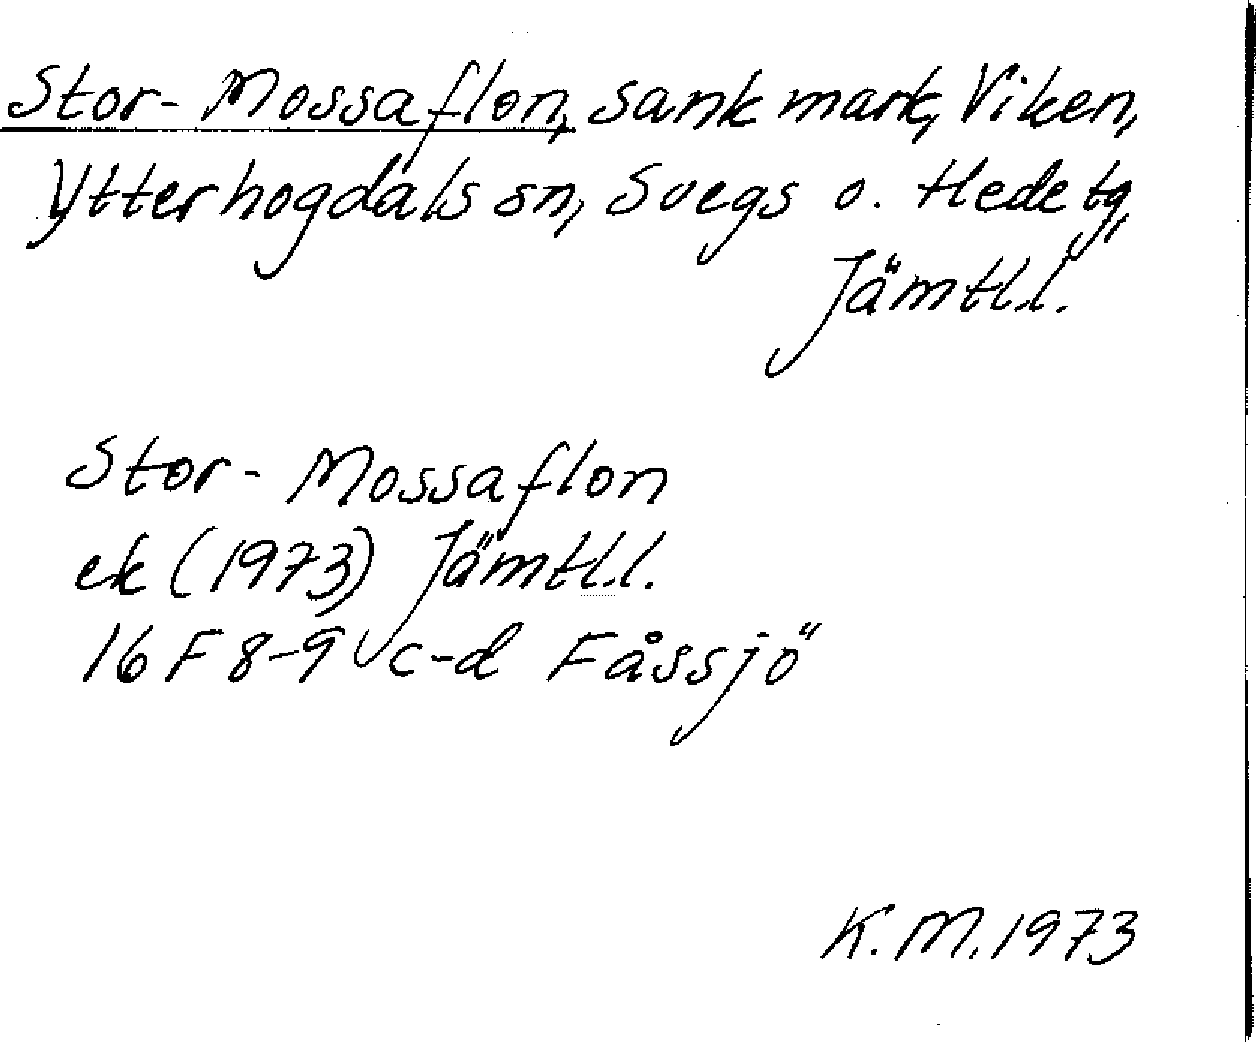 Stor-Mossaflon, sank mark, Viken,
Ytterhogdals sn, Svegs o. Hede tg,
Jämtl.l.
Stor-Mossaflon
ek (1973) Jämtl.l.
16 F 8-9 c-d Fåssjö
K.M. 1973